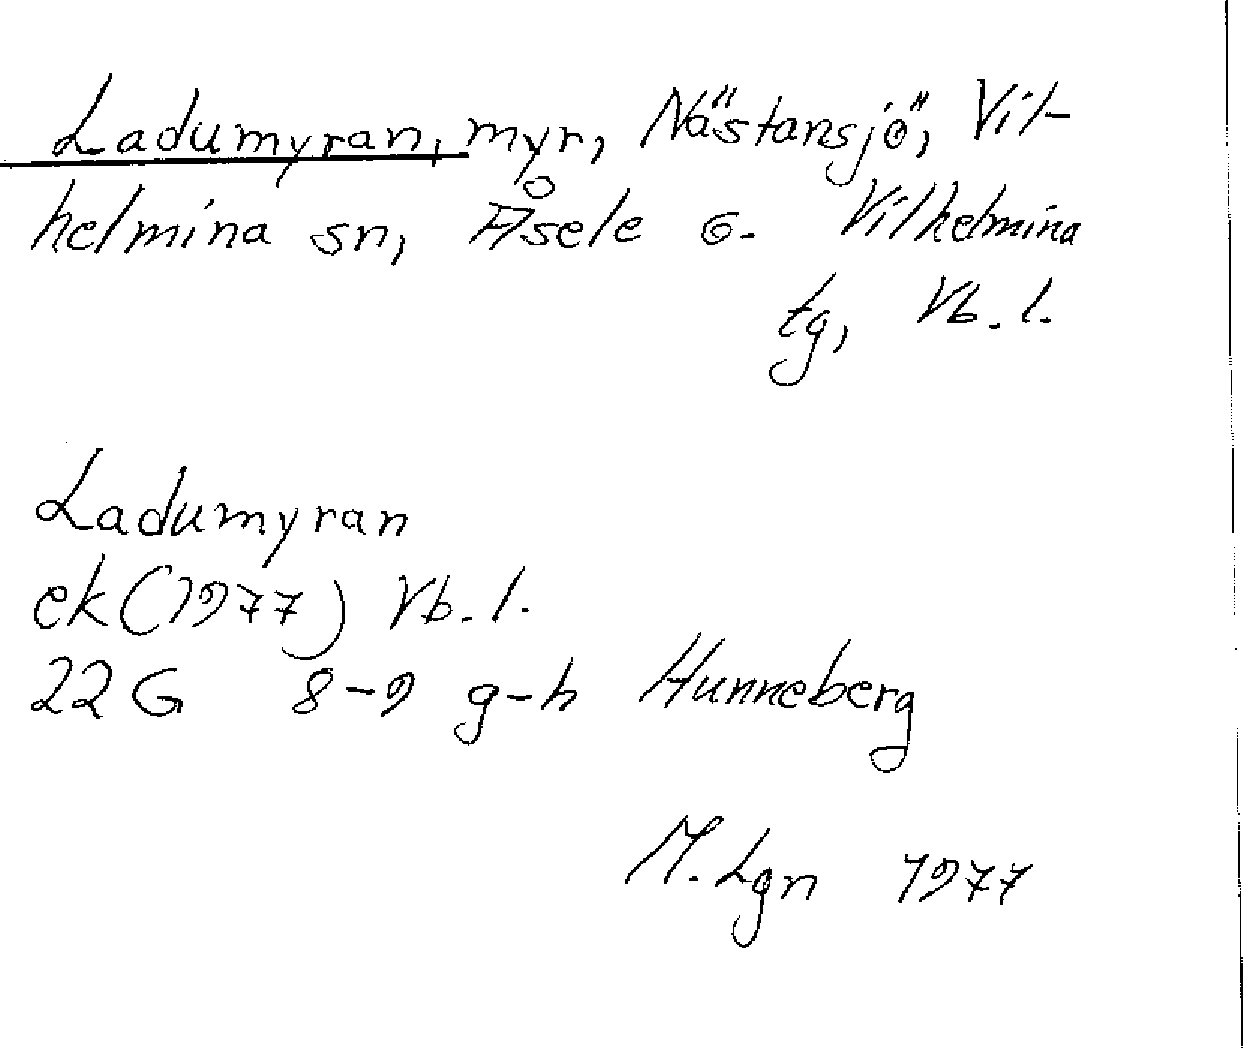 Ladumyran, myr, Nästansjö, Vil-
helmina sn, Åsele G. Vilhelmina
tg, Vb. l.
Ladumyran
ek (1977) Vb. l.
22 G 8-9 g-h Hunneberg
M. Lgn 1977